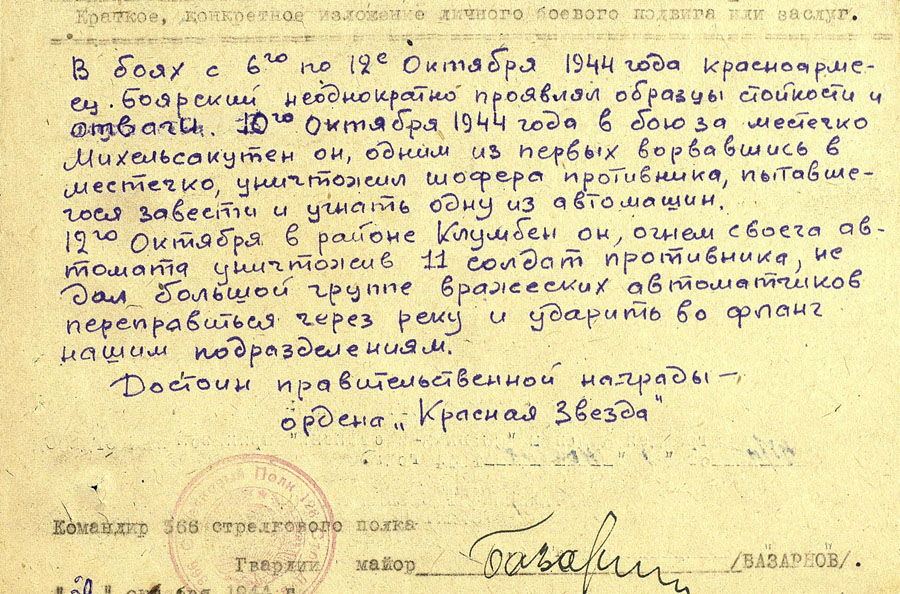 Краткое, конкретное изложение личного боевого подвига или заслуг.
В боях с 6го по 12е Октября 1944 года красноарме-
ец. Боярский неоднократно проявлял образцы стойкости и
отваги. 10го Октября 1944 года в бою за местечко
Михельсакутен он, одним из первых ворвавшись в
местечко, уничтожил шофера противника, пытавше-
гося завести и угнать одну из автомашин.
12го Октября в районе Клумбен он, огнем своега ав-
томата уничтожив 11 солдат противника, не
дал большой группе вражеских автоматчиков
переправиться через реку и ударить во фланг
нашим подразделениям.
Достоин правительственной награды —
ордена „Красная Звезда"
Командир 566 стрелкового полка
Гвардии майор Базарн /БАЗАРНОВ/.
1944 г.